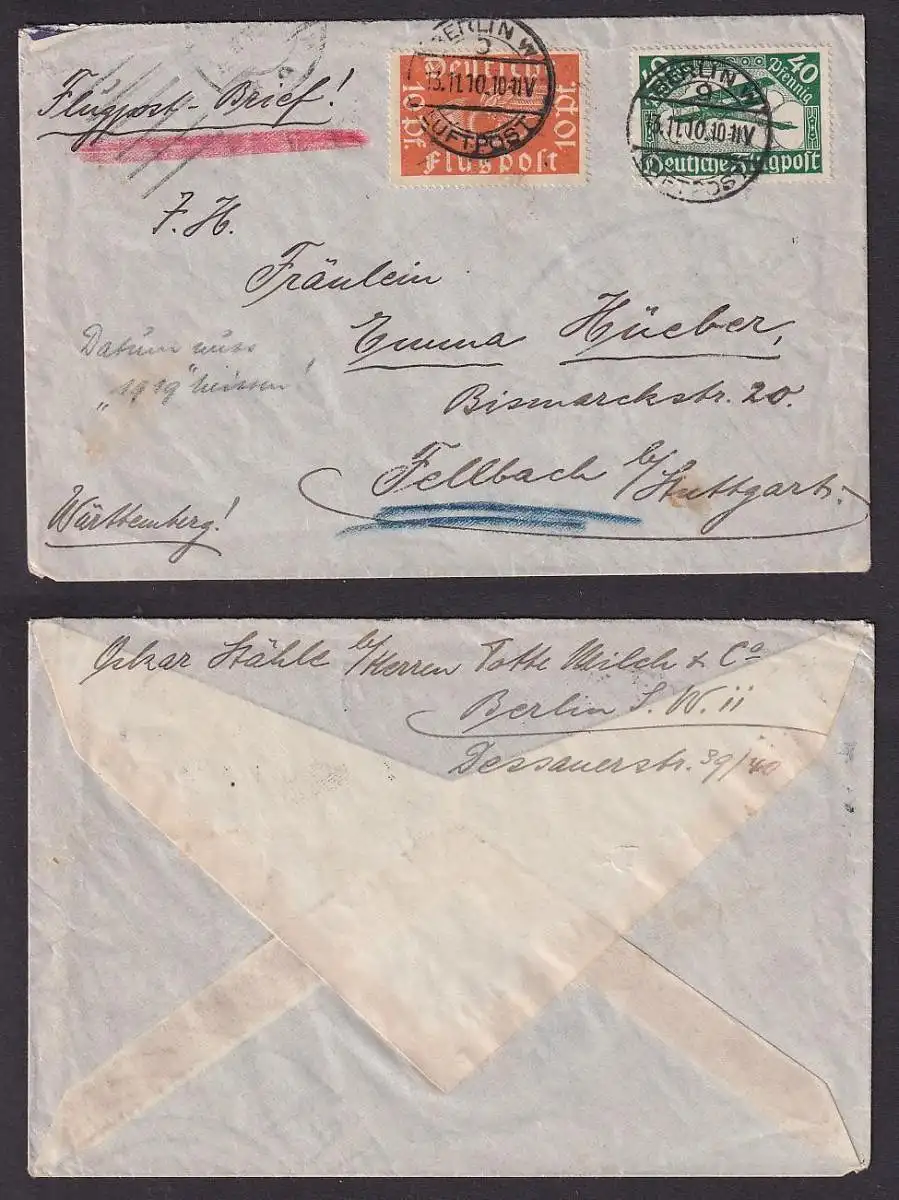 Flugpost-Brief!
BERLIN W
9
13.11.10.10-11V
LUFTPOST
Deutsche
10 Pf
10 Pf.
Flugpost
BERLIN W
9
13.11.10.10-11V
LUFTPOST
40
Pfennig
40
Deutsche Flugpost
F. H.
Fräulein
Emma Hüeber,
Bismarckstr. 20.
Fellbach b/Stuttgart.
Württemberg!
Datum muss
„1919" heissen!
Oskar Stähle b/Herren Totte Milch & Co
Berlin S. W. 11
Dessauerstr. 39/40